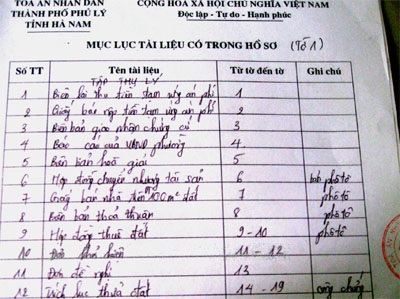 TÒA ÁN NHÂN DÂN CỘNG HÒA XÃ HỘI CHỦ NGHĨA VIỆT NAM
THÀNH PHỐ PHỦ LÝ Độc lập - Tự do - Hạnh phúc
TỈNH HÀ NAM
MỤC LỤC TÀI LIỆU CÓ TRONG HỒ SƠ (Tờ 1)
Số TT Tên tài liệu Từ tờ đến tờ Ghi chú
TẬP THỤ LÝ
1 Biên lai thu tiền tạm ứng án phí 1
2 Giấy báo nộp tiền tạm ứng án phí 2
3 Biên bản giao nhận chứng cứ 3
4 Báo cáo của UBND phường 4
5 Biên bản hoà giải 5
6 Hợp đồng chuyển nhượng tài sản 6 phôtô
7 Giấy bán nhà trên 100m² đất 7 phôtô
8 Biên bản thoả thuận 8 phôtô
9 Hợp đồng thuê đất 9 - 10 phôtô
10 Đơn khởi kiện 11 - 12
11 Đơn đề nghị 13
12 Trích lục thửa đất 14 - 19 công chứng